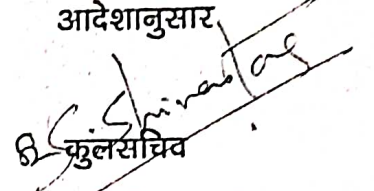 आदेशानुसार,
कुलसचिव